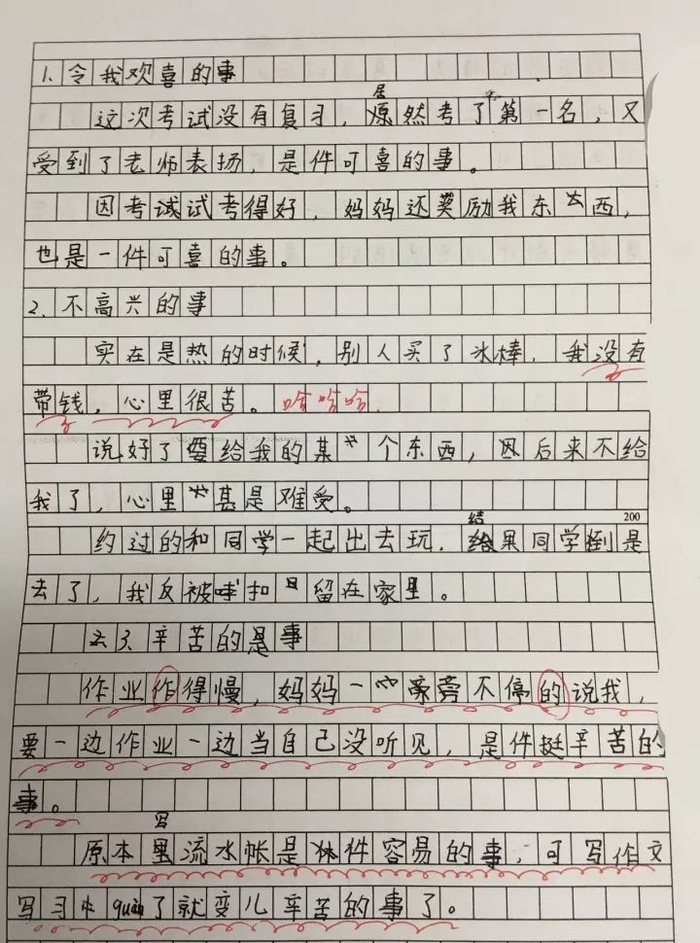 1.令我欢喜的事
这次考试没有复习，居然考了第一名，又
受到了老师表扬，是件可喜的事。
因考试考得好，妈妈还奖励我东西，
也是一件可喜的事。
2.不高兴的事
实在是热的时候，别人买了冰棒，我没有
带钱，心里很苦。哈哈哈
说好了要给我的某个东西，因后来不给
我了，心里甚是难受。
200
约过的和同学一起出去玩，结果同学倒是
去了，我反被扣留在家里。
辛苦的事
作业作得慢，妈妈一旁不停的说我，
要一边作业一边当自己没听见，是件挺辛苦的
事。
原本写流水帐是件容易的事，可写作文
写习quàn了就变儿辛苦的事了。